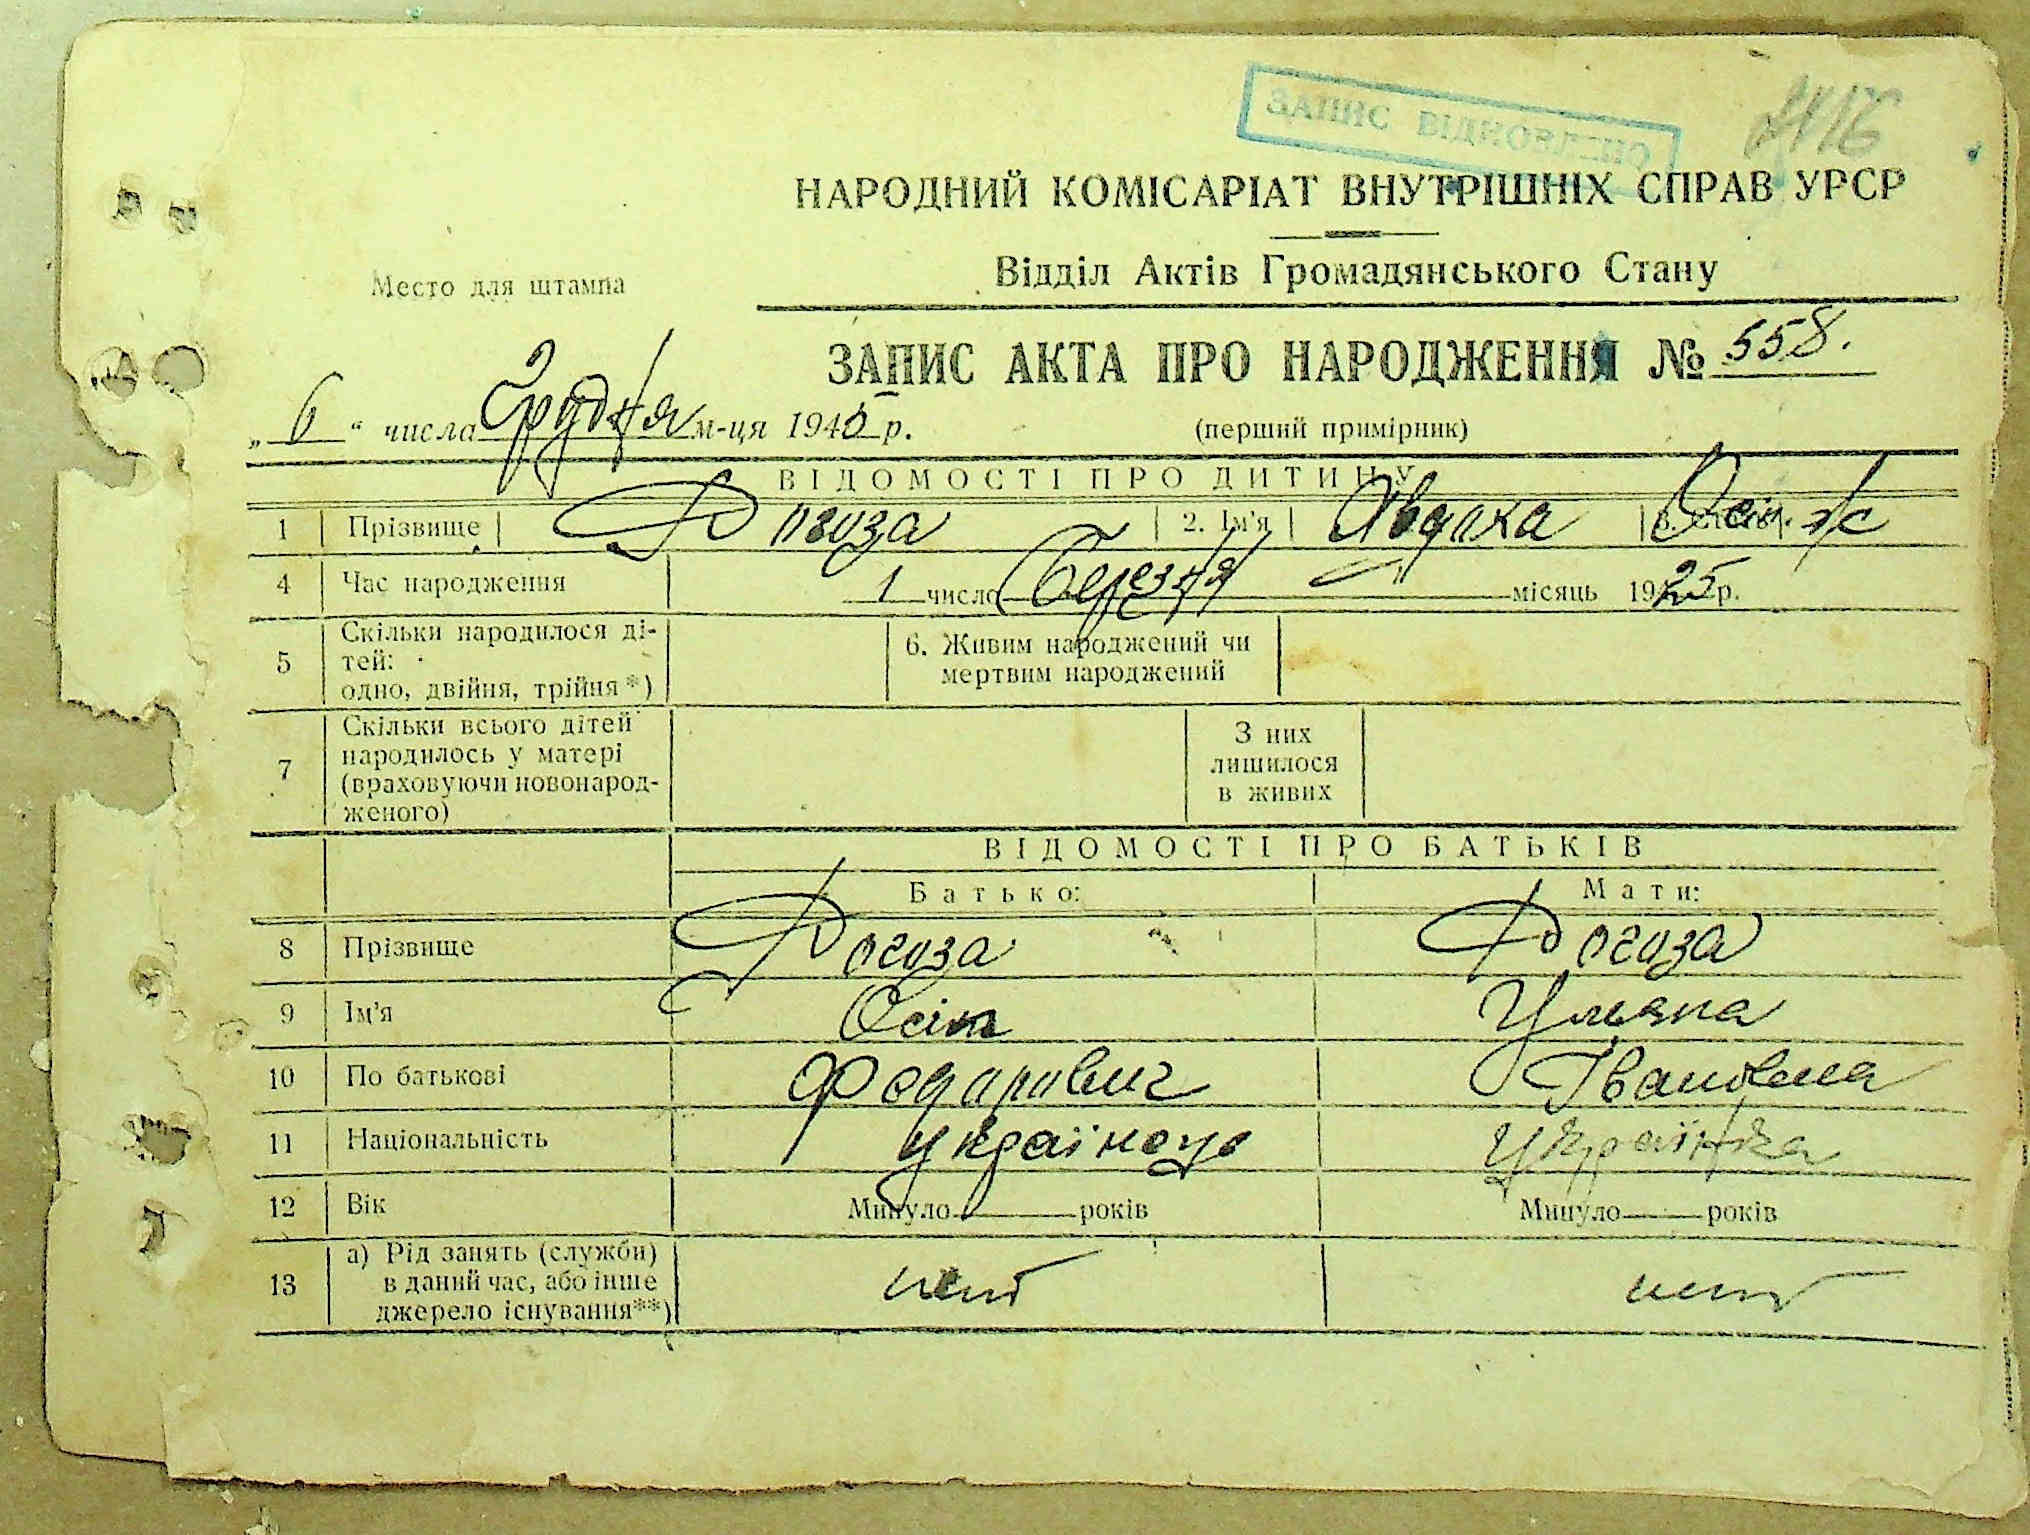 ЗАПИС ВІДНОВЛЕНО
НАРОДНИЙ КОМІСАРІАТ ВНУТРІШНІХ СПРАВ УРСР
Место для штампа
Відділ Актів Громадянського Стану
ЗАПИС АКТА ПРО НАРОДЖЕННЯ № 558.
„ 6 “ числа Грудня м-ця 1945 р.
(перший примірник)
ВІДОМОСТІ ПРО ДИТИНУ
1 Прізвище Рогоза 2. Ім'я Явдоха 3. Стать жс
4 Час народження 1 число Березня місяць 1925 р.
5 Скільки народилося ді-
тей:
одно, двійня, трійня*)
6. Живим народжений чи
мертвим народжений
7 Скільки всього дітей
народилось у матері
(враховуючи новонарод-
женого)
З них
лишилося
в живих
ВІДОМОСТІ ПРО БАТЬКІВ
Батько: Мати:
8 Прізвище Рогоза Рогоза
9 Ім'я Осип Уляна
10 По батькові Федорович Івановна
11 Національність українець українка
12 Вік Минуло років Минуло років
13 а) Рід занять (служби)
в даний час, або інше
джерело існування**)